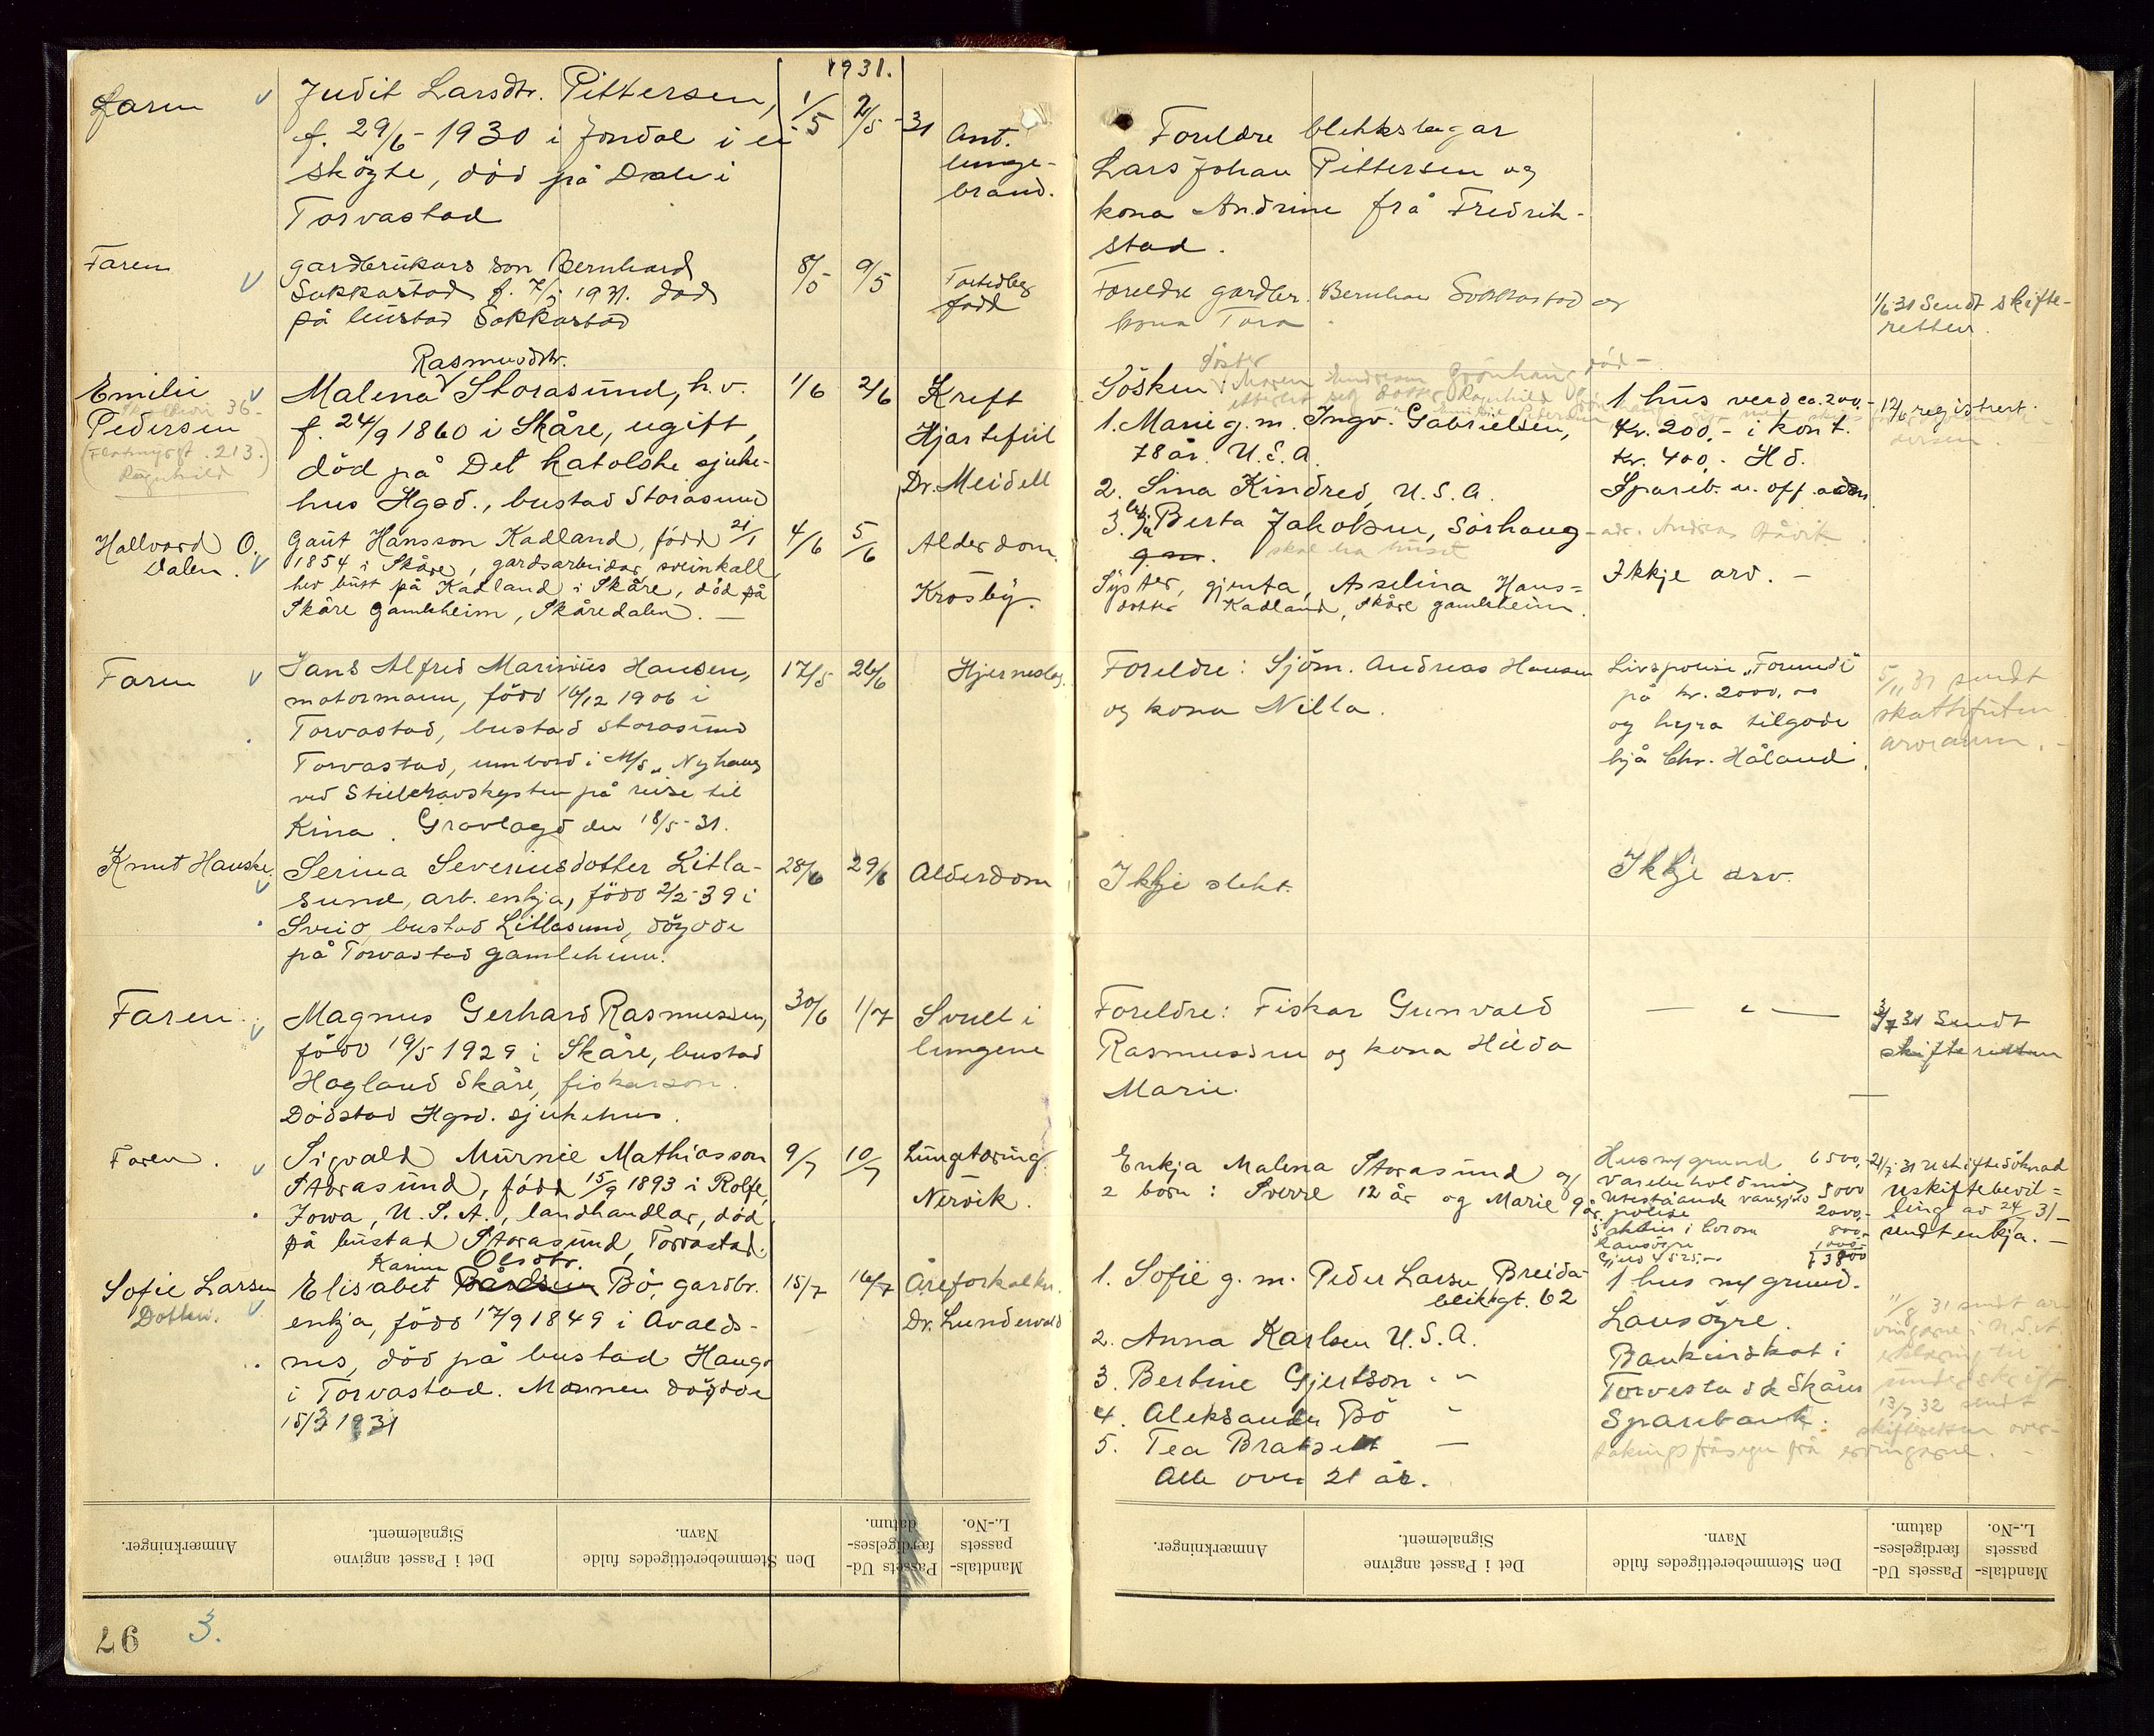 1931.
Faren
Judit Larsdtr. Pittersen,
f. 29/6-1930 i Jondal i ei
skøyte, död på Dale i
Torvastad
1/5 2/5-31
Ant.
lunge-
brand.
Foreldre blekkslagar
Lars Johan Pittersen og
kona Andrine frå Fredrik-
stad.
Faren
gardbrukars son Bernhard
Sakkastad f. 7/5 1931. död
på bustad Sakkastad
8/5 9/5
født
Foreldre gardbr. Bernhar Sakkastad og
kona Tora
1/6 31 Sendt skifte-
retten.
Emilie
Pedersen
(Flotmyrgt. 213.)
Ragnhild
Rasmusdtr.
Malena Storasund, h.v.
f. 24/9 1860 i Skåre, ugift,
död på Det katolske sjuke-
hus Hgsd., bustad Storasund
1/6 2/6
Kreft
Hjartefeil
Dr. Meidell
Söster
Sösken:
1. Marie g.m. Ingv. Gabrielsen,
78 år. U.S.A.
2. Sina Kindred, U.S.A.
3. Berta Jakobsen, Sörhaug-
g.m. skal ha huset
1 hus verd ca. 200,-
Kr. 200,- i kont.
Kr. 400,- Hd.
Spareb. u. off. adm
adr. Andreas Håvik
12/6 registrert.
Hallvard O.
Dalen.
Gaut Hansson Kadland, född 21/1
1854 i Skåre, gardsarbeidar, sveinkall
hev búst på Kadland i Skåre, död på
Skåre gamleheim, Skåredalen. —
4/6 5/6
Alderdom
Krosby.
Syster, gjenta, Asselina Hans=
dotter Kadland, Skåre gamleheim.
Ikkje arv. —
Faren
Jans Alfred Marinius Hansen,
motormann, född 16/12 1906 i
Torvastad, bustad Storasund
Torvastad, umbord i M/S „Nyhaug
ved Stillehavskysten på reise til
Kina. Gravlagd den 18/5-31.
17/5 26/6
Hjerneslag.
Foreldre: Sjöm. Andreas Hansen
og kona Nilla.
Livspolise „Forende"
på kr. 2000,00
og hyra tilgode
hjå Chr. Håland.
5/11 31 sendt
skattefuten
Knut Hauske.
Serina Severinsdotter Litla-
sund, arb. enkja, född 2/2-39 i
Sveio, bustad Litlasund, döydde
på Torvastad gamleheim.
28/6 29/6
Alderdom
Ikkje slekt.
Ikkje arv.
Faren
Magnus Gerhard Rasmussen,
född 19/5 1929 i Skåre, bustad
Hagland Skåre, fiskarson.
Dödstad Hgsd. sjukehus.
30/6 1/7
Svull i
lungene
Foreldre: Fiskar Gunvald
Rasmussen og kona Hilda
Marie.
— " —
3/7 31 Sendt
skifteretten
—
Faren.
Sigvald Múrnie Mathiasson
Storasund, född 15/9 1893 i Rolfe,
Jowa, U.S.A., landhandlar, död
på bústad Storasund, Torvastad.
9/7 10/7
Lungetæring
Nervik.
Enkja Malena Storasund og
2 born: Sverre 12 år og Marie 9 år
Hus m/ grund 6500,-
Varebeholdning 5000
Uteståande varegjeld 2000,-
polise
800,-
Lausøyre 1000,-
13800
Gjeld 4525,-
21/7 31 Uskiftesöknad
Uskiftebevil=
ling av 24/7 31 —
sendt enkja. —
Sofie Larsen
Dotteri.
Karine Olsdtr.
Elisabet Bårdsen Bö, gardbr.
enkja, född 17/9 1849 i Avalds-
nes, död på bustad Haugs
i Torvastad. Mannen döydde
15/3 1931
15/7 16/7
Åreforkalkn.
Dr. Lundevold
1. Sofie g.m. Peder Larsen Breida-
blikgt. 62
2. Anna Karlsen U.S.A.
3. Bertine Gjertson " "
4. Aleksander Bö "
5. Tea Bratseth —
Alle over 21 år.
1 hus m/ grund.
Lausöyre.
Bankinskot i
Torvestad & Skåre
Sparebank.
11/8 31 sendt ar
vingarne i U.S.A.
erklæring til
underskrift
13/7 32 sendt
skifteretten over-
takingsfråsegn frå ervingarne. —
Anmærkninger.
Det i Passet angivne
Signalement.
Den Stemmeberettigedes fulde
Navn.
Passets Ud-
færdigelses-
datum.
Mandtals-
passets
L.-No.
Anmærkninger.
Det i Passet angivne
Signalement.
Den Stemmeberettigedes fulde
Navn.
Passets Ud-
færdigelses-
datum.
Mandtals-
passets
L.-No.
97
3.